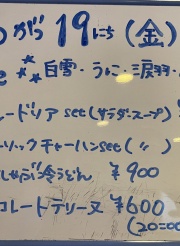 がつ 19にち (金)
白雪・うに・涙羽・
ードリア set (サラダ・スープ)
ーリックチャーハン set ( 〃 )
しゃぶ冷うどん ¥900
コレートテリーヌ ¥600
(20:00